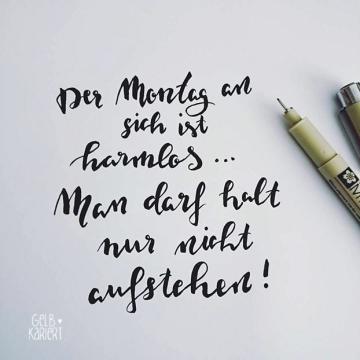 Der Montag an
sich ist
harmlos ...
Man darf halt
nur nicht
aufstehen!
GELB
KARIERT